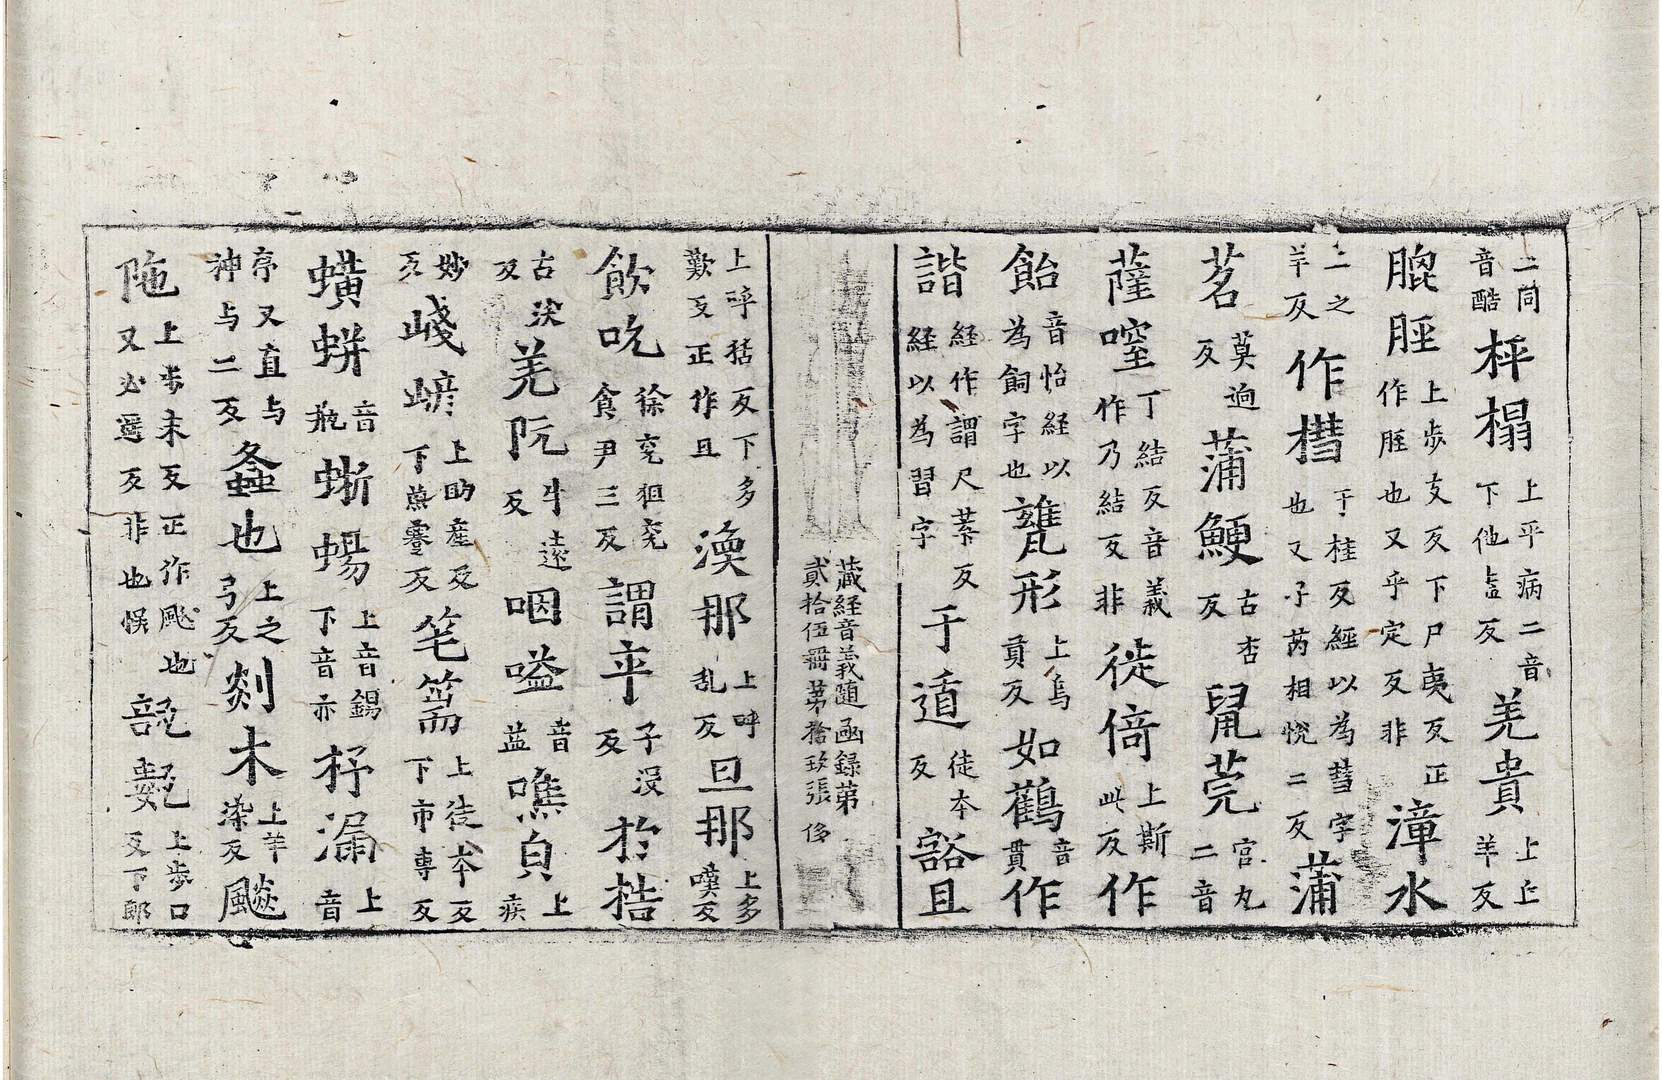 二同音酷枰榻上平病二音下他盍反羌貴上丘羊反
膍脛上步支反下尸夷反正作胵也又乎定反非漳水
上之羊反作槥于桂反經以為彗字也又子芮相恱二反蒲
茗莫逈反蒲鯁古杏反㲋莞官丸二音
薩㗌丁結反音義作乃結反非徙倚上斯此反作
飴音怡経以為飼字也甕形上烏貢反如鸛音貫作
諧経作謂尺葉反経以為習字于遁徒本反豁且
藏経音義随函録第貳拾伍冊第拾玖張 侈
上呼括反下多歎反正作且渙那上呼乱反旦那上多嘆反
飲吮徐兖徂兖食尹三反謂卒子没反於梏
古沃反羌阮牛遠反咽嗌音益噍貟上疾
妙反嶘嵃上助産反下魚蹇反笔篅上徒本反下市専反
蟥蛢音瓶蜥蝪上音錫下音亦杼漏上音
序又直与神与二反螽也上之弓反剡木上羊染反飈
陁上步末反又必遥反非也悮正作颰也㼾㼿上步口反下郎